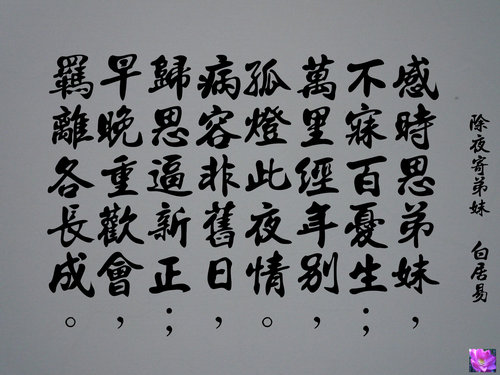 除夜寄弟妹 白居易
感時思弟妹，
不寐百憂生；
萬里經年别，
孤燈此夜情。
病容非舊日，
歸思逼新正；
早晚重歡會，
羈離各長成。